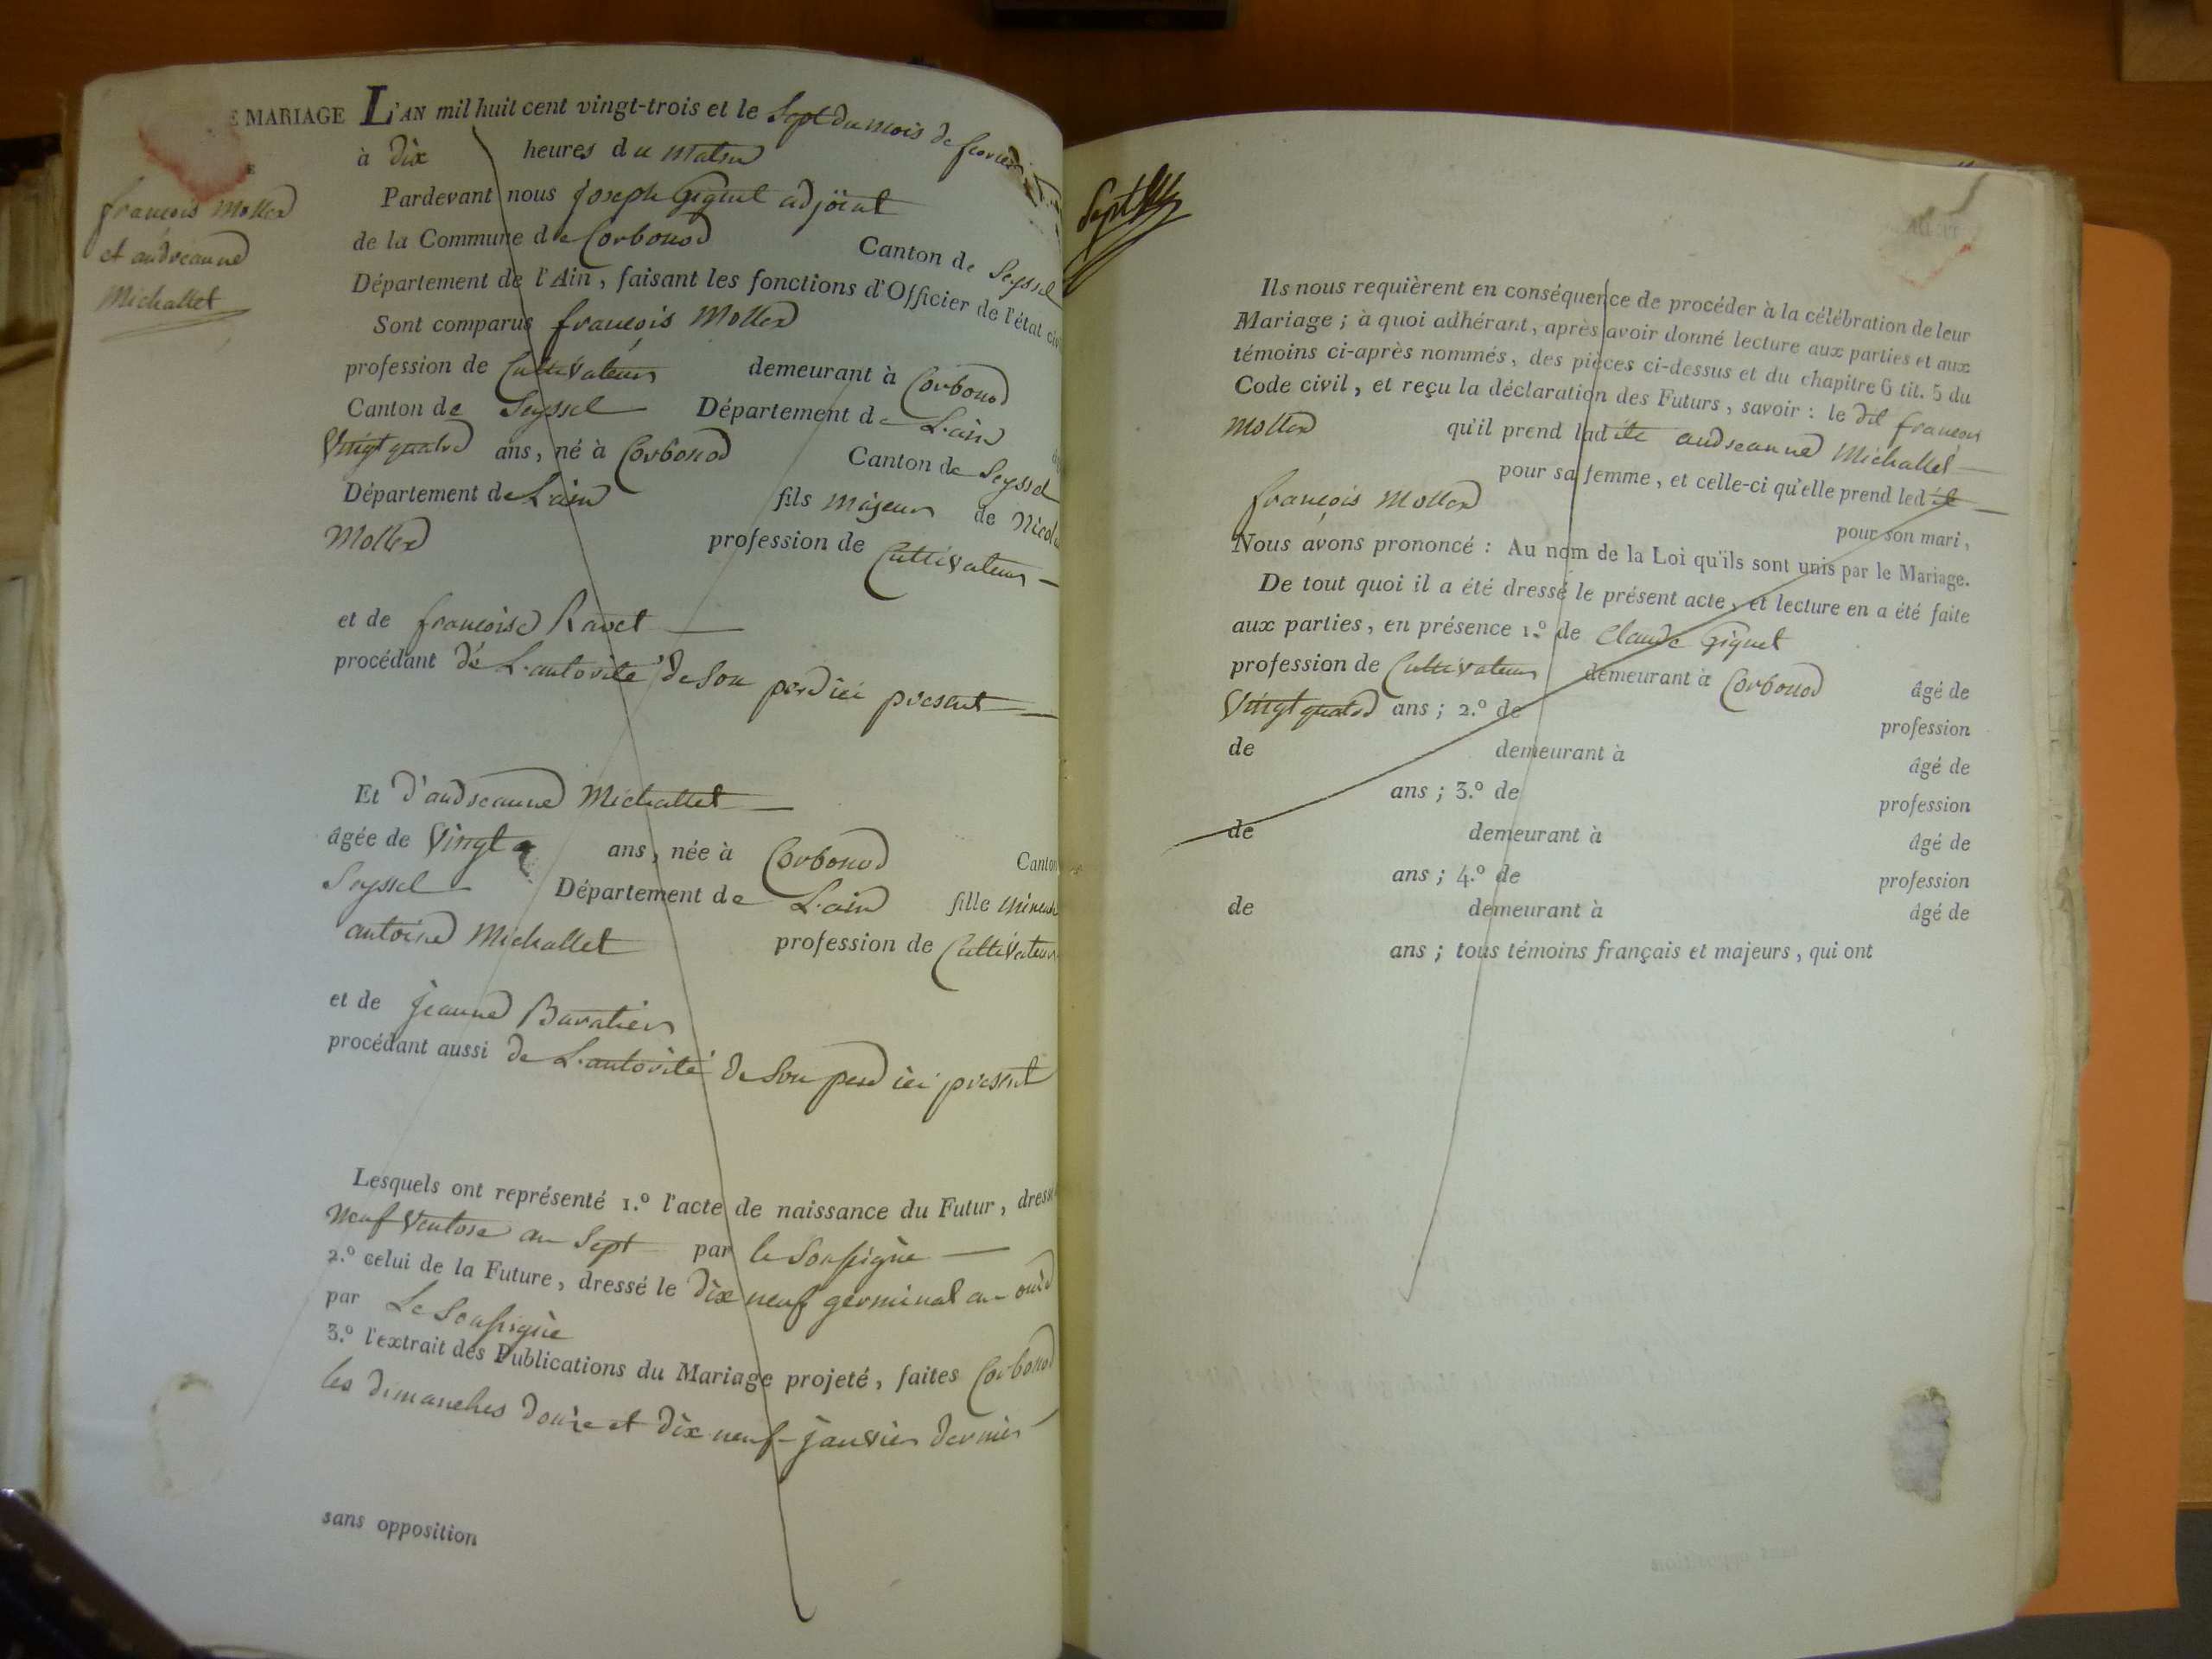 E MARIAGE
françois Mollex
et andréanne
Michallet
L'AN mil huit cent vingt-trois et le Sept du mois de fevrier
à dix heures du matin
Pardevant nous joseph Giguet adjoint
de la Commune de Corbonod Canton de Seyssel
Département de l'Ain, faisant les fonctions d'Officier de l'état civ
Sont comparus françois Mollex
profession de Cultivateur demeurant à Corbonod
Canton de Seyssel Département de L'ain
Vingt quatre ans, né à Corbonod Canton de Seyssel
Département de L'ain fils majeur de Nicola
Mollex profession de Cultivateur
et de françoise Ravet
procédant de L'autorité de son pere ici present
Et d'andréanne Michallet
âgée de Vingt ans, née à Corbonod Canton
Seyssel Département de L'ain fille mineure
antoine Michallet profession de Cultivateur
et de jeanne Baratier
procédant aussi de L'autorité de son pere ici present
Lesquels ont représenté 1.º l'acte de naissance du Futur, dressé
neuf Ventose an Sept par le Soussigné
2.º celui de la Future, dressé le dix neuf germinal an onze
par Le Soussigné
3.º l'extrait des Publications du Mariage projeté, faites Corbonod
les dimanches douze et dix neuf janvier dernier
sans opposition
Sept
Ils nous requièrent en conséquence de procéder à la célébration de leur
Mariage ; à quoi adhérant, après avoir donné lecture aux parties et aux
témoins ci-après nommés, des pièces ci-dessus et du chapitre 6 tit. 5 du
Code civil, et reçu la déclaration des Futurs, savoir : le dit françois
Mollex qu'il prend ladite andréanne Michallet
pour sa femme, et celle-ci qu'elle prend ledit
françois Mollex pour son mari,
Nous avons prononcé : Au nom de la Loi qu'ils sont unis par le Mariage.
De tout quoi il a été dressé le présent acte, et lecture en a été faite
aux parties, en présence 1.º de Claude Giguet
profession de Cultivateur demeurant à Corbonod âgé de
Vingt quatre ans ; 2.º de profession
de demeurant à âgé de
ans ; 3.º de profession
de demeurant à âgé de
ans ; 4.º de profession
de demeurant à âgé de
ans ; tous témoins français et majeurs, qui ont